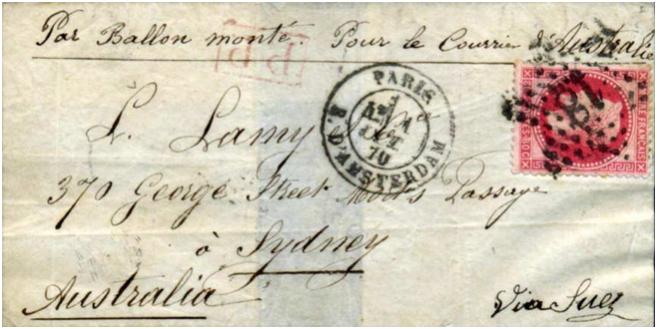 Par Ballon monté. Pour le Courrier d'Australie
P.P.
PARIS
OCT.
70
R. D'AMSTERDAM
FRANÇAIS
L. Lamy
370 George Street Passage
à Sydney
Australia
Via Suez